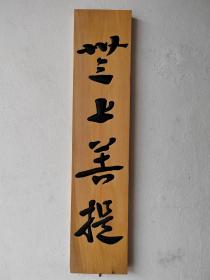 無上菩提